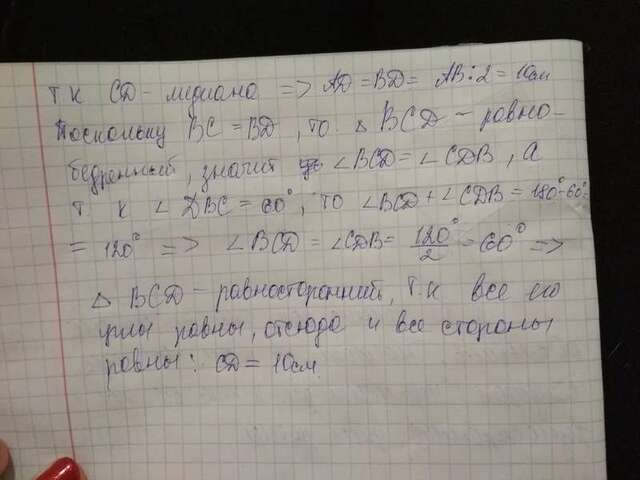 т.к CD - медиана => AD = BD = AB : 2 = 10см
Поскольку BC = BD, то △ BCD - равно-
бедренный, значит ∠BCD = ∠CDB, а
т. к ∠DBC = 60°, то ∠BCD + ∠CDB = 180° - 60° =
= 120° => ∠BCD = ∠CDB = 120°/2 = 60° =>
△ BCD - равносторонний, т.к все его
углы равны, отсюда и все стороны
равны: CD = 10см